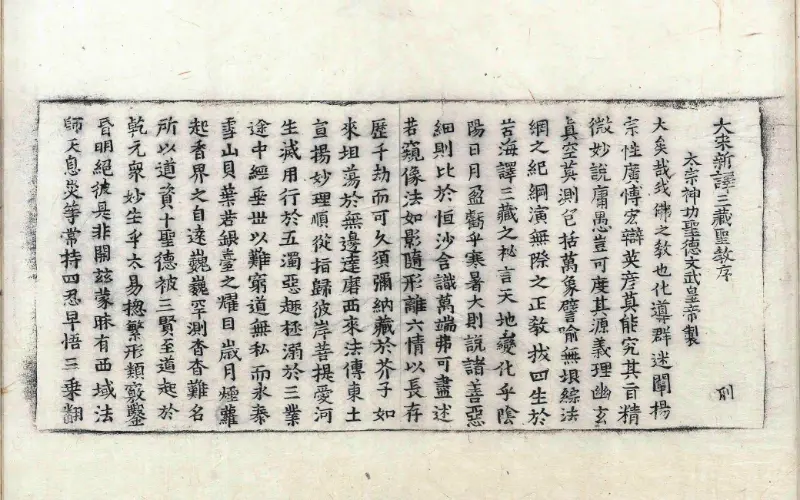 大宋新譯三藏聖教序
太宗神功聖德文武皇帝製
大矣哉我佛之教也化導群迷闡揚
宗性廣博宏辯英彦莫能究其旨精
微妙説庸愚豈可度其源義理幽玄
真空莫測包括萬象譬喻無垠綜法
網之紀綱演無際之正教拔四生於
苦海譯三藏之祕言天地變化乎陰
陽日月盈虧乎寒暑大則説諸善惡
細則比於恒沙含識萬端弗可盡述
若窺像法如影隨形離六情以長存
歷千劫而可久須彌納藏於芥子如
來坦蕩於無邊達磨西來法傳東土
宣揚妙理順從指歸彼岸菩提愛河
生滅用行於五濁惡趣極溺於三業
途中經垂世以難窮道無私而永泰
雪山貝葉若銀臺之耀目歲月煙蘿
起香界之自遠巍巍罕測杳杳難名
所以道資十聖德被三賢至道起於
乾元衆妙生乎太易揔繁形類竅鑿
昏明絕彼是非開兹蒙昧有西域法
師天息災等常持四忍早悟三乘翻